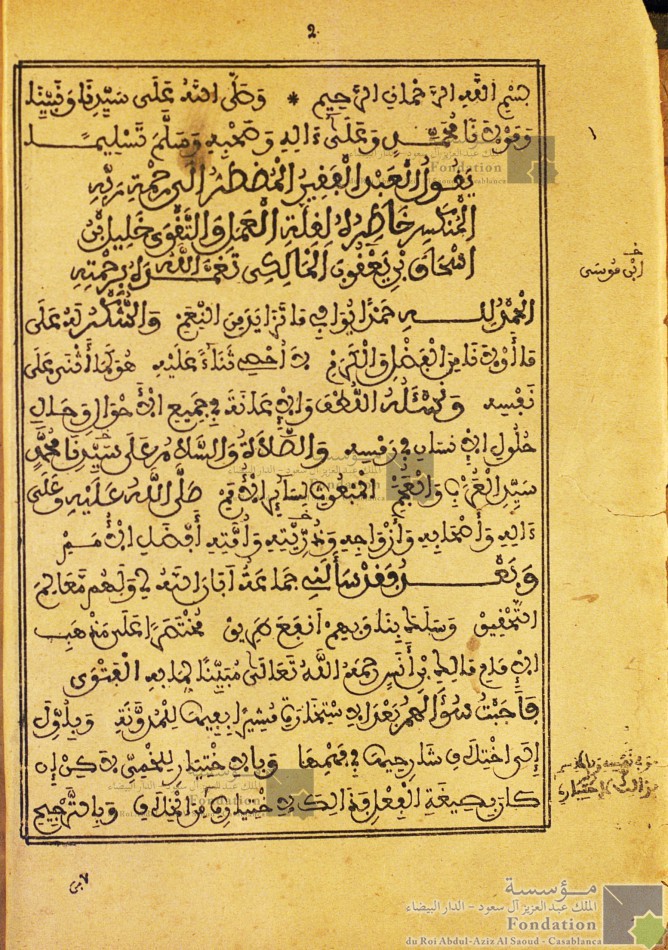 2
بسم الله الرحمان الرحيم * وصلى الله على سيدنا ونبينا
ومولانا محمد وعلى ءاله وصحبه وسلم تسليما
يقول العبد الفقير المضطر الى رحمة ربه
المنكسر خاطره لقلة العمل والتقوى خليل بن
اسحاق بن يعقوب المالكي تغمده الله برحمته
الحمد لله حمدا يوافي ما تزايد من النعم والشكر له على
ما أولانا من الفضل والكرم لا أحصي ثناء عليه هو كما أثنى على
نفسه ونسئله اللطف والاعانة في جميع الاحوال وحال
حلول الانسان في رمسه والصلاة والسلام على سيدنا محمد
سيد العرب والعجم المبعوث لسائر الامم صلى الله عليه وعلى
ءاله وأصحابه وأزواجه وذريته وأمته أفضل الامم
وبعد فقد سألني جماعة أبان الله لي ولهم معالم
التحقيق وسلك بنا وبهم انفع طريق مختصرا على مذهب
الامام مالك بن أنس رحمه الله تعالى مبينا لما به الفتوى
فأجبت سؤالهم بعد الاستخارة مشيرا بفيها للمدونة وبأول
إلى اختلاف شارحيها في فهمها وبالاختيار للخمي لاكن إن
كان بصيغة الفعل فذالك لاختياره من الخلاف وبالترجيح
خ
ابي موسى
مؤسسة
الملك عبد العزيز آل سعود - الدار البيضاء
Fondation
du Roi Abdul-Aziz Al Saoud - Casablanca